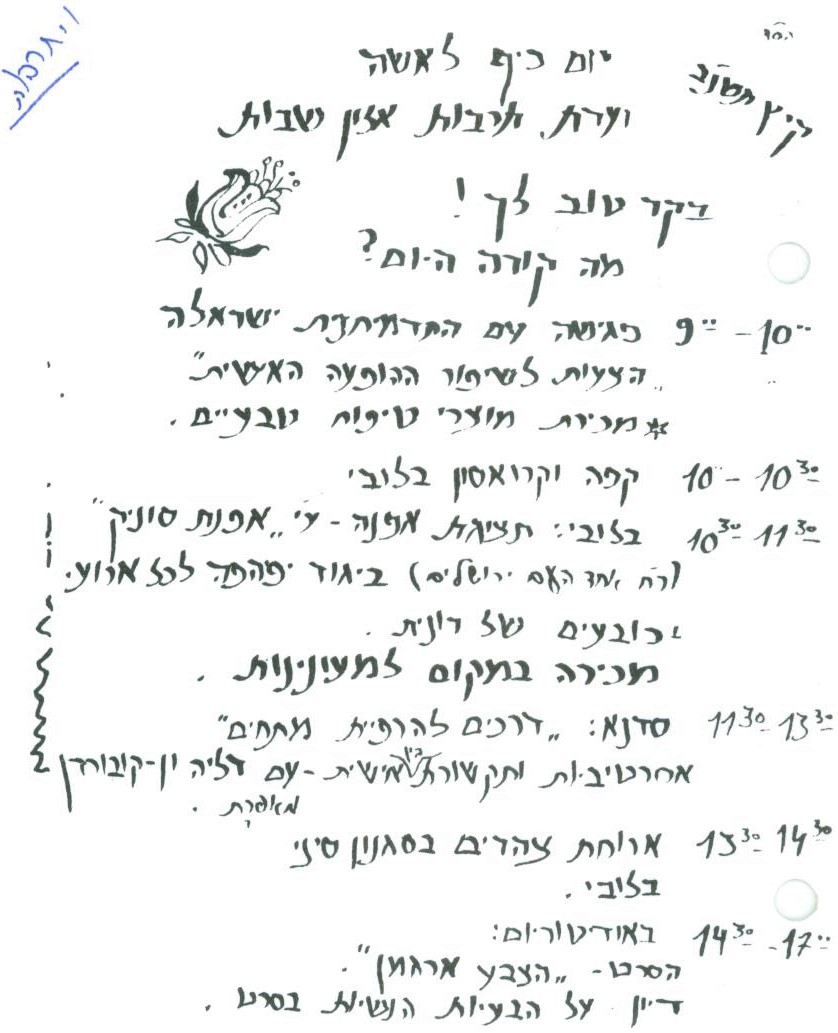 בס"ד
קיץ תשנ"ב
יום כיף לאשה
ועדת תרבות אלון שבות
בקר טוב לך!
מה קורה היום?
9⁰⁰ – 10⁰⁰ פגישה עם הקוסמטיקאית ישראלה
"הצעות לשיפור ההופעה האישית"
* מכירת מוצרי טיפוח טבעיים.
10 – 10³⁰ קפה וקרואסון בלובי
10³⁰ 11³⁰ בלובי: תצוגת אפנה - ע"י "אפנת סוניק"
(רח' אחד העם ירושלים) ביגוד יפהפה לכל ארוע.
וכובעים של רונית.
מכירה במקום למעונינות.
11³⁰ 13³⁰ סדנא: "דרכים להרפית מתחים"
אסרטיביות ותקשורת בין אישית - עם דליה
מאפרת.
13³⁰ 14³⁰ ארוחת צהרים בסגנון סיני
בלובי.
14³⁰ - 17⁰⁰ באודיטוריום:
הסרט - "הצבע ארגמן".
דיון על הבעיות הנשיות בסרט.